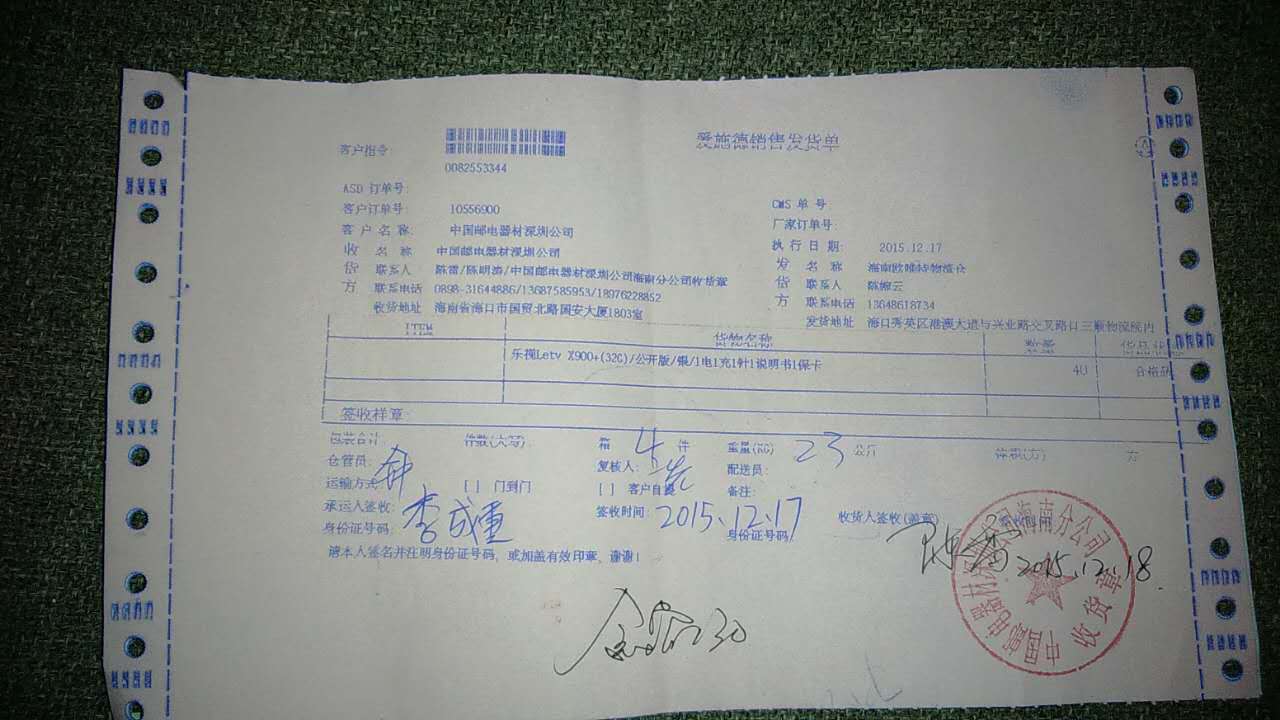 爱施德销售发货单
客户指令:
0082553344
ASD 订单号:
CMS 单 号
客户订单号: 10556900
厂家订单号:
客 户 名 称: 中国邮电器材深圳公司
执 行 日 期: 2015.12.17
收 名 称 中国邮电器材深圳公司
发 名 称 海南欧唯特物流仓
货 联系人 陈雷/陈明涛/中国邮电器材深圳公司海南分公司收货章
货 联系人 陈婉云
方 联系电话 0898-31644886/13687585953/18976228852
方 联系电话 13648618734
收货地址 海南省海口市国贸北路国安大厦1803室
发货地址 海口秀英区港澳大道与兴业路交叉路口三顺物流院内
ITEM 货物名称 数量
乐视Letv X900+(32G)/公开版/银/1电1充1针1说明书1保卡 4U 合格品
签收样章:
包装合计 件数(大写): 箱 4 件 重量(KG) 23 公斤 体积(方) 方
仓管员: 钟 复核人: 配送员:
运输方式: [ ] 门到门 [ ] 客户自提 备注:
承运人签收: 李成重 签收时间: 2015.12.17 收货人签收(盖章) 签收时间
身份证号码: 身份证号码
陈雷 2015.12.18
请本人签名并注明身份证号码, 或加盖有效印章, 谢谢!
中国邮电器材深圳公司海南分公司
收货章